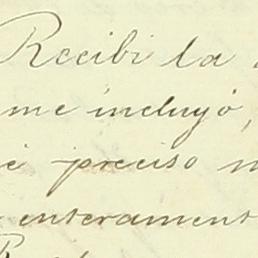 Recibi la
me incluyó,
preciso
enterament